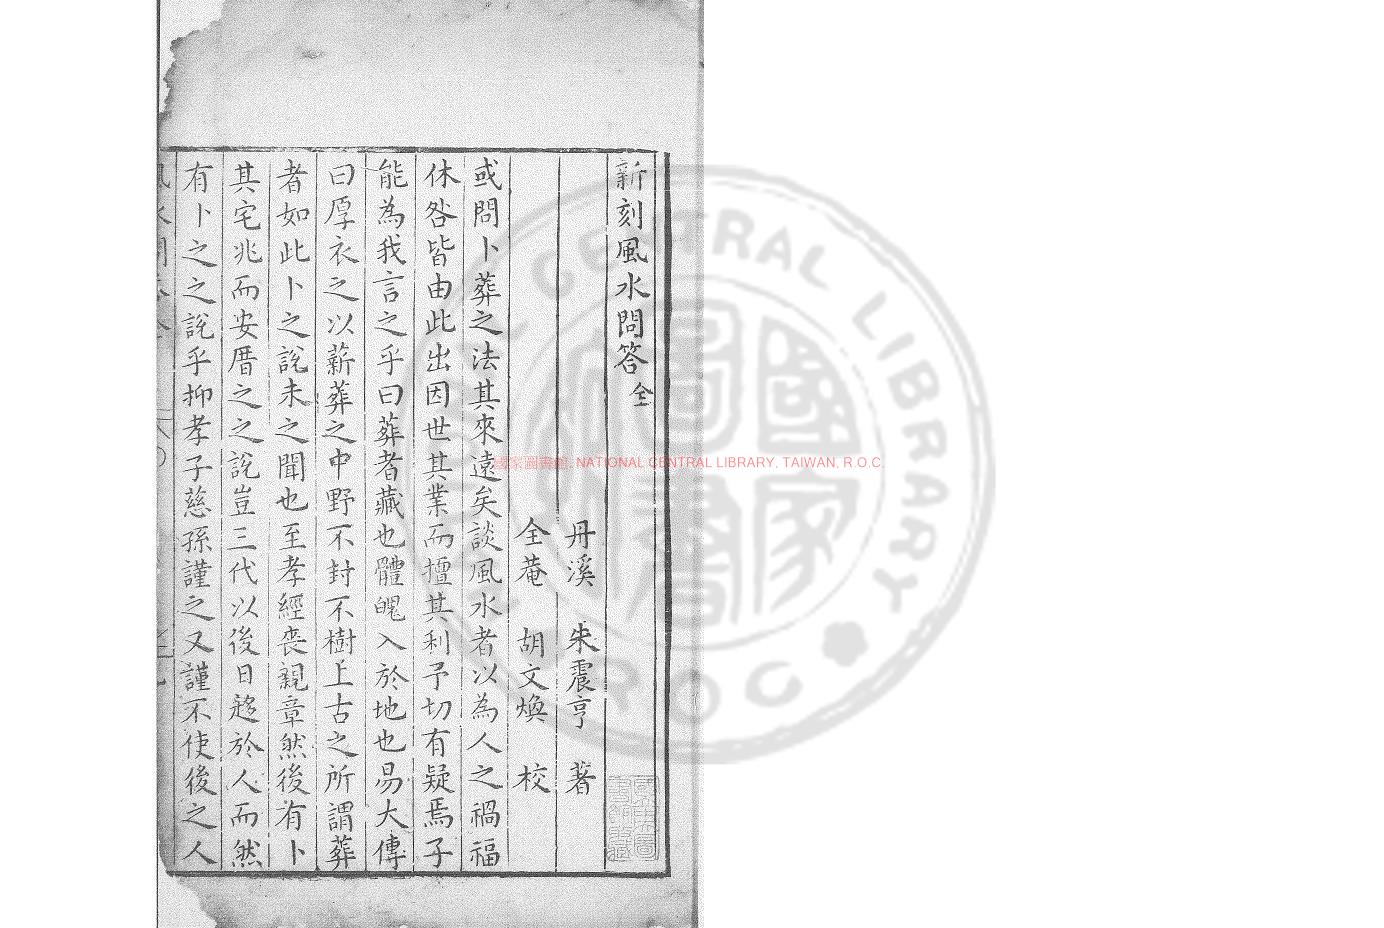 新刻風水問答 全
丹溪 朱震亨 著
全菴 胡文煥 校
或問卜葬之法其來遠矣談風水者以為人之禍福
休咎皆由此出因世其業而擅其利予切有疑焉子
能為我言之乎曰葬者藏也體魄入於地也易大傳
曰厚衣之以薪葬之中野不封不樹上古之所謂葬
者如此卜之說未之聞也至孝經喪親章然後有卜
其宅兆而安厝之之說豈三代以後日趍於人而然
有卜之之說乎抑孝子慈孫謹之又謹不使後之人
國家圖書館, NATIONAL CENTRAL LIBRARY, TAIWAN, R.O.C.
CENTRAL LIBRARY
R.O.C
國家圖書